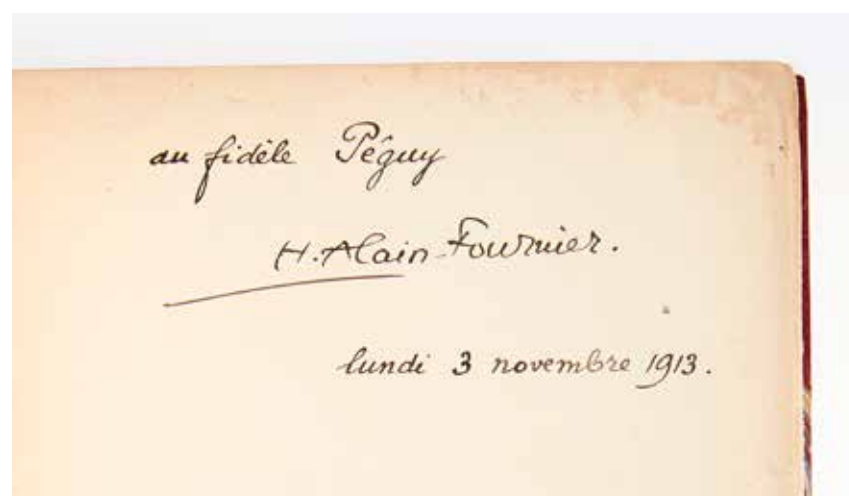 au fidèle Péguy
H. Alain-Fournier.
lundi 3 novembre 1913.